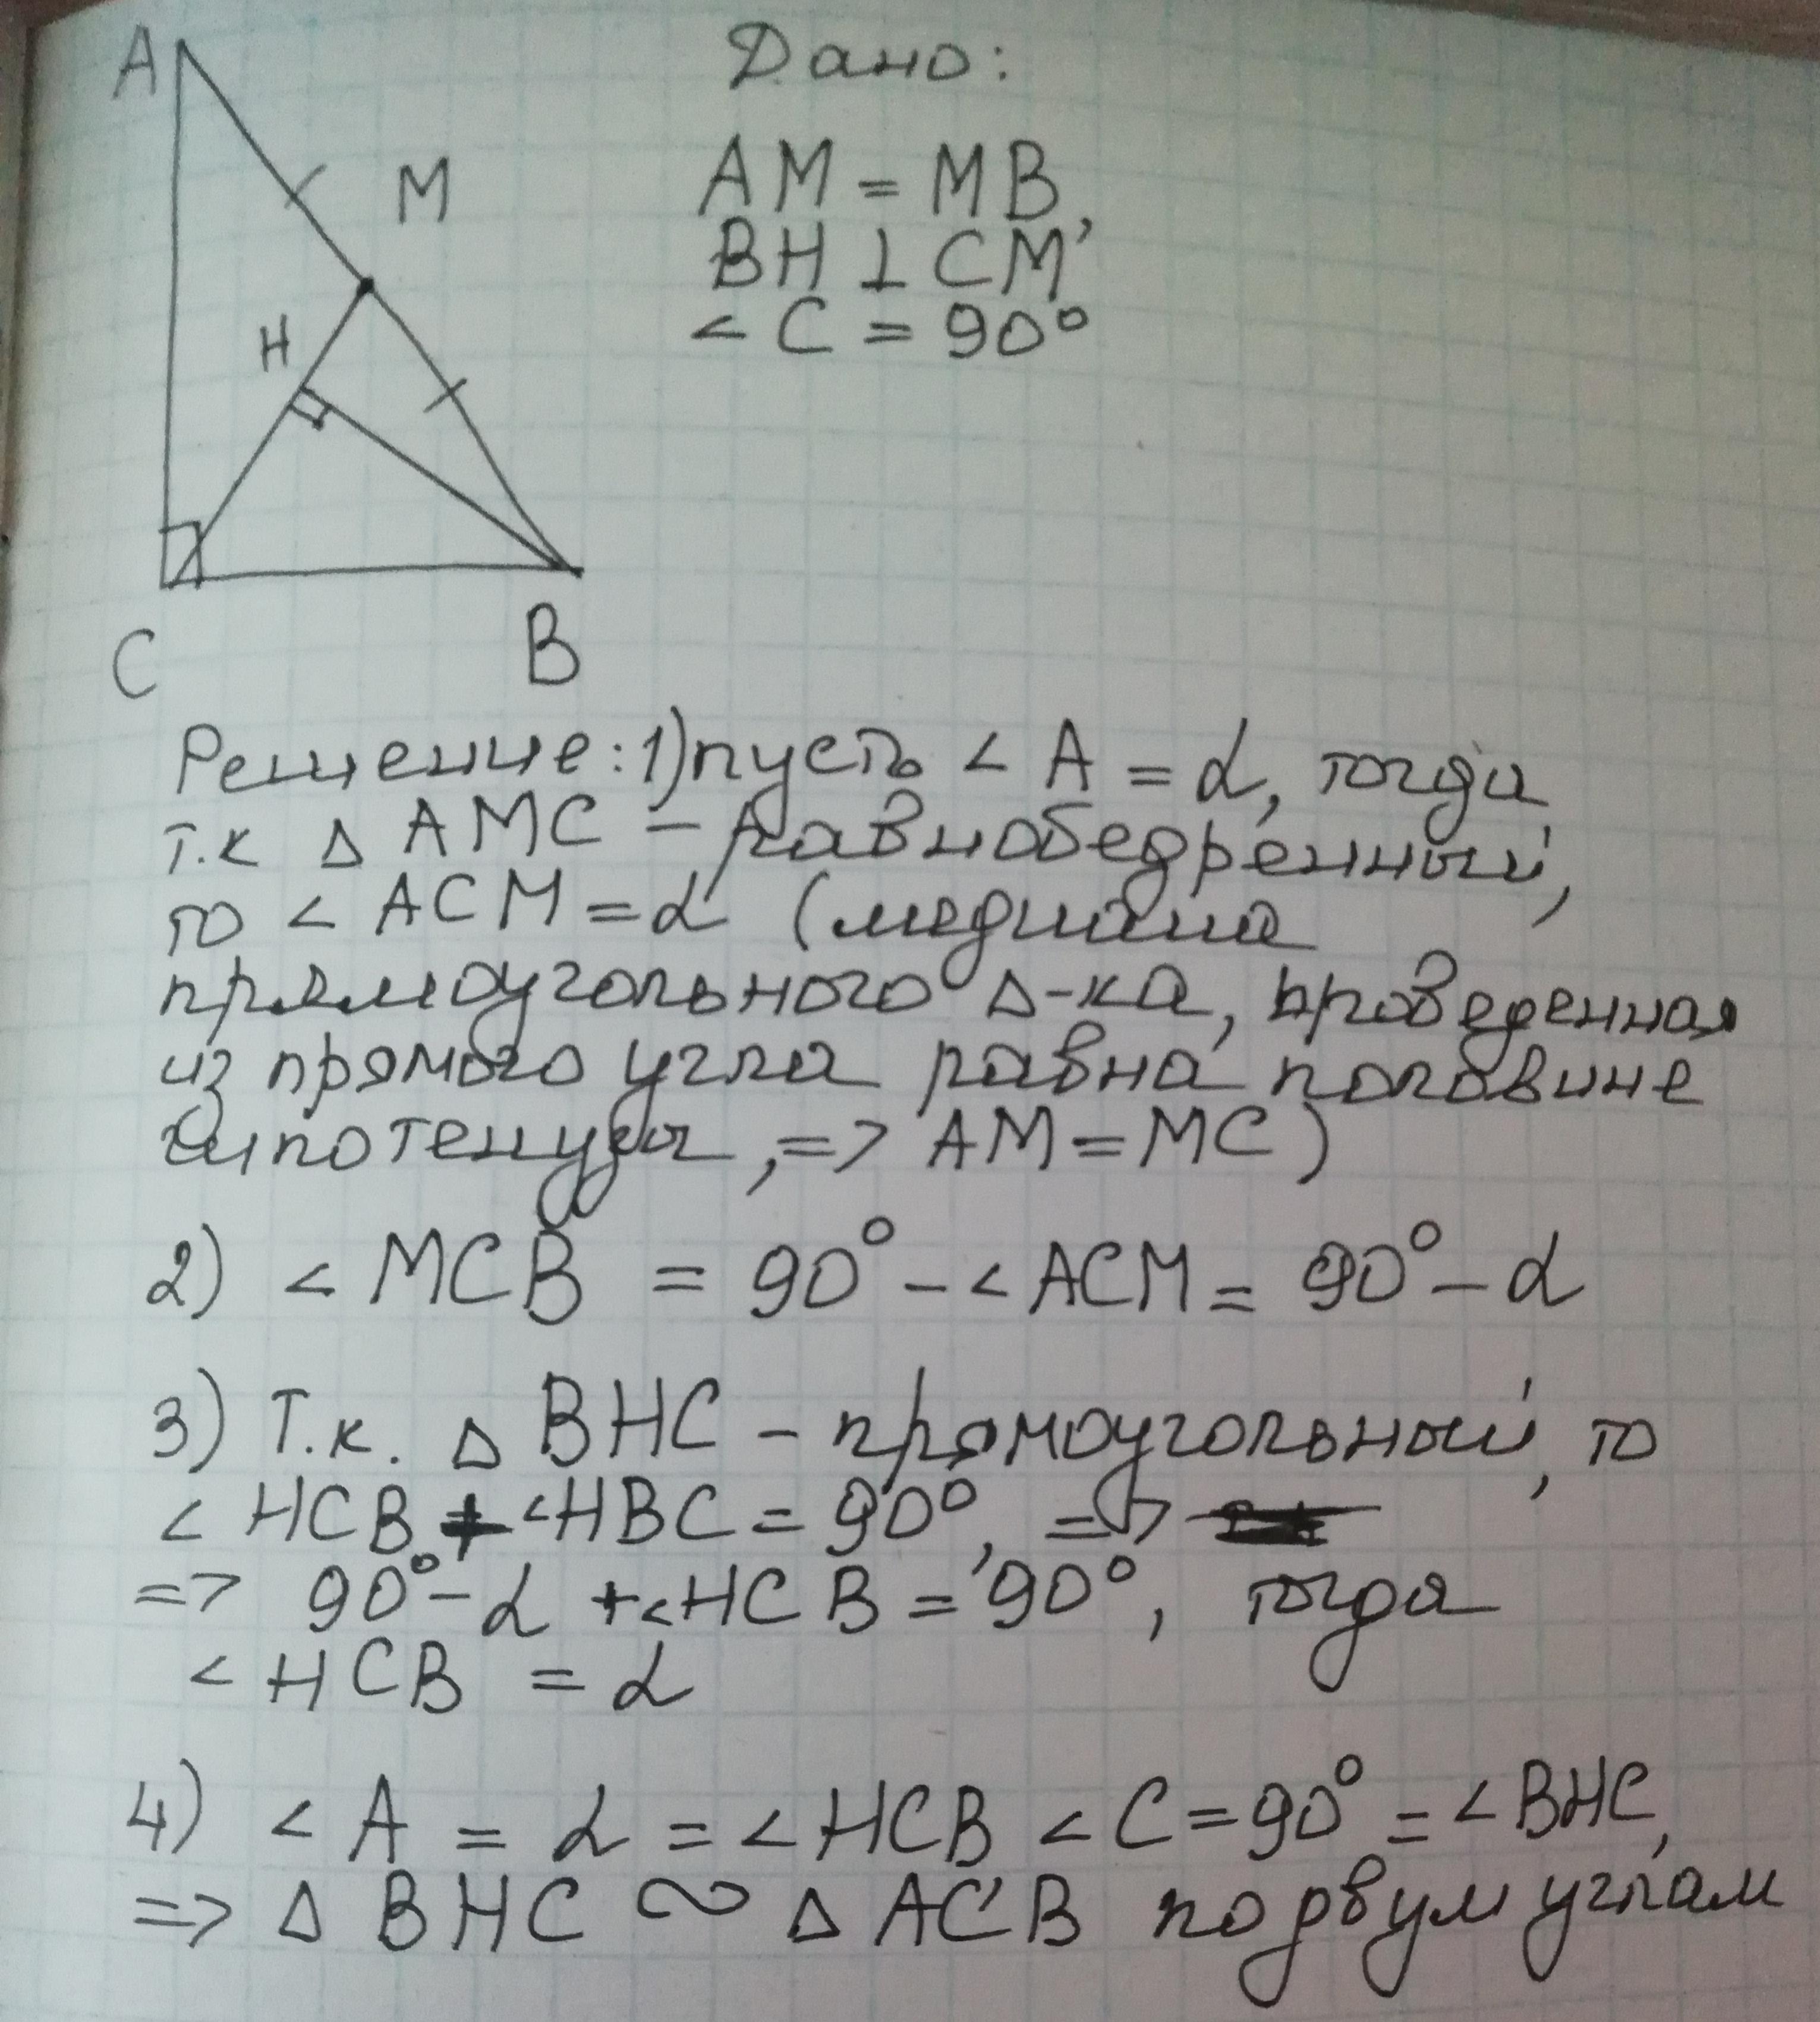 A
M
H
C
B
Дано:
AM = MB,
BH ⊥ CM,
< C = 90°
Решение: 1) пусть < A = α, тогда
т.к Δ AMC – равнобедренный,
то < ACM = α (медиана
прямоугольного Δ-ка, проведенная
из прямого угла равна половине
гипотенузы, => AM = MC)
2) < MCB = 90° - < ACM = 90° - α
3) Т.к. Δ BHC – прямоугольный, то
< HCB + <HBC = 90°, =>
=> 90° - α + <HCB = 90°, тогда
< HCB = α
4) < A = α = < HCB < C = 90° = < BHC,
=> Δ BHC ∾ Δ ACB по двум углам